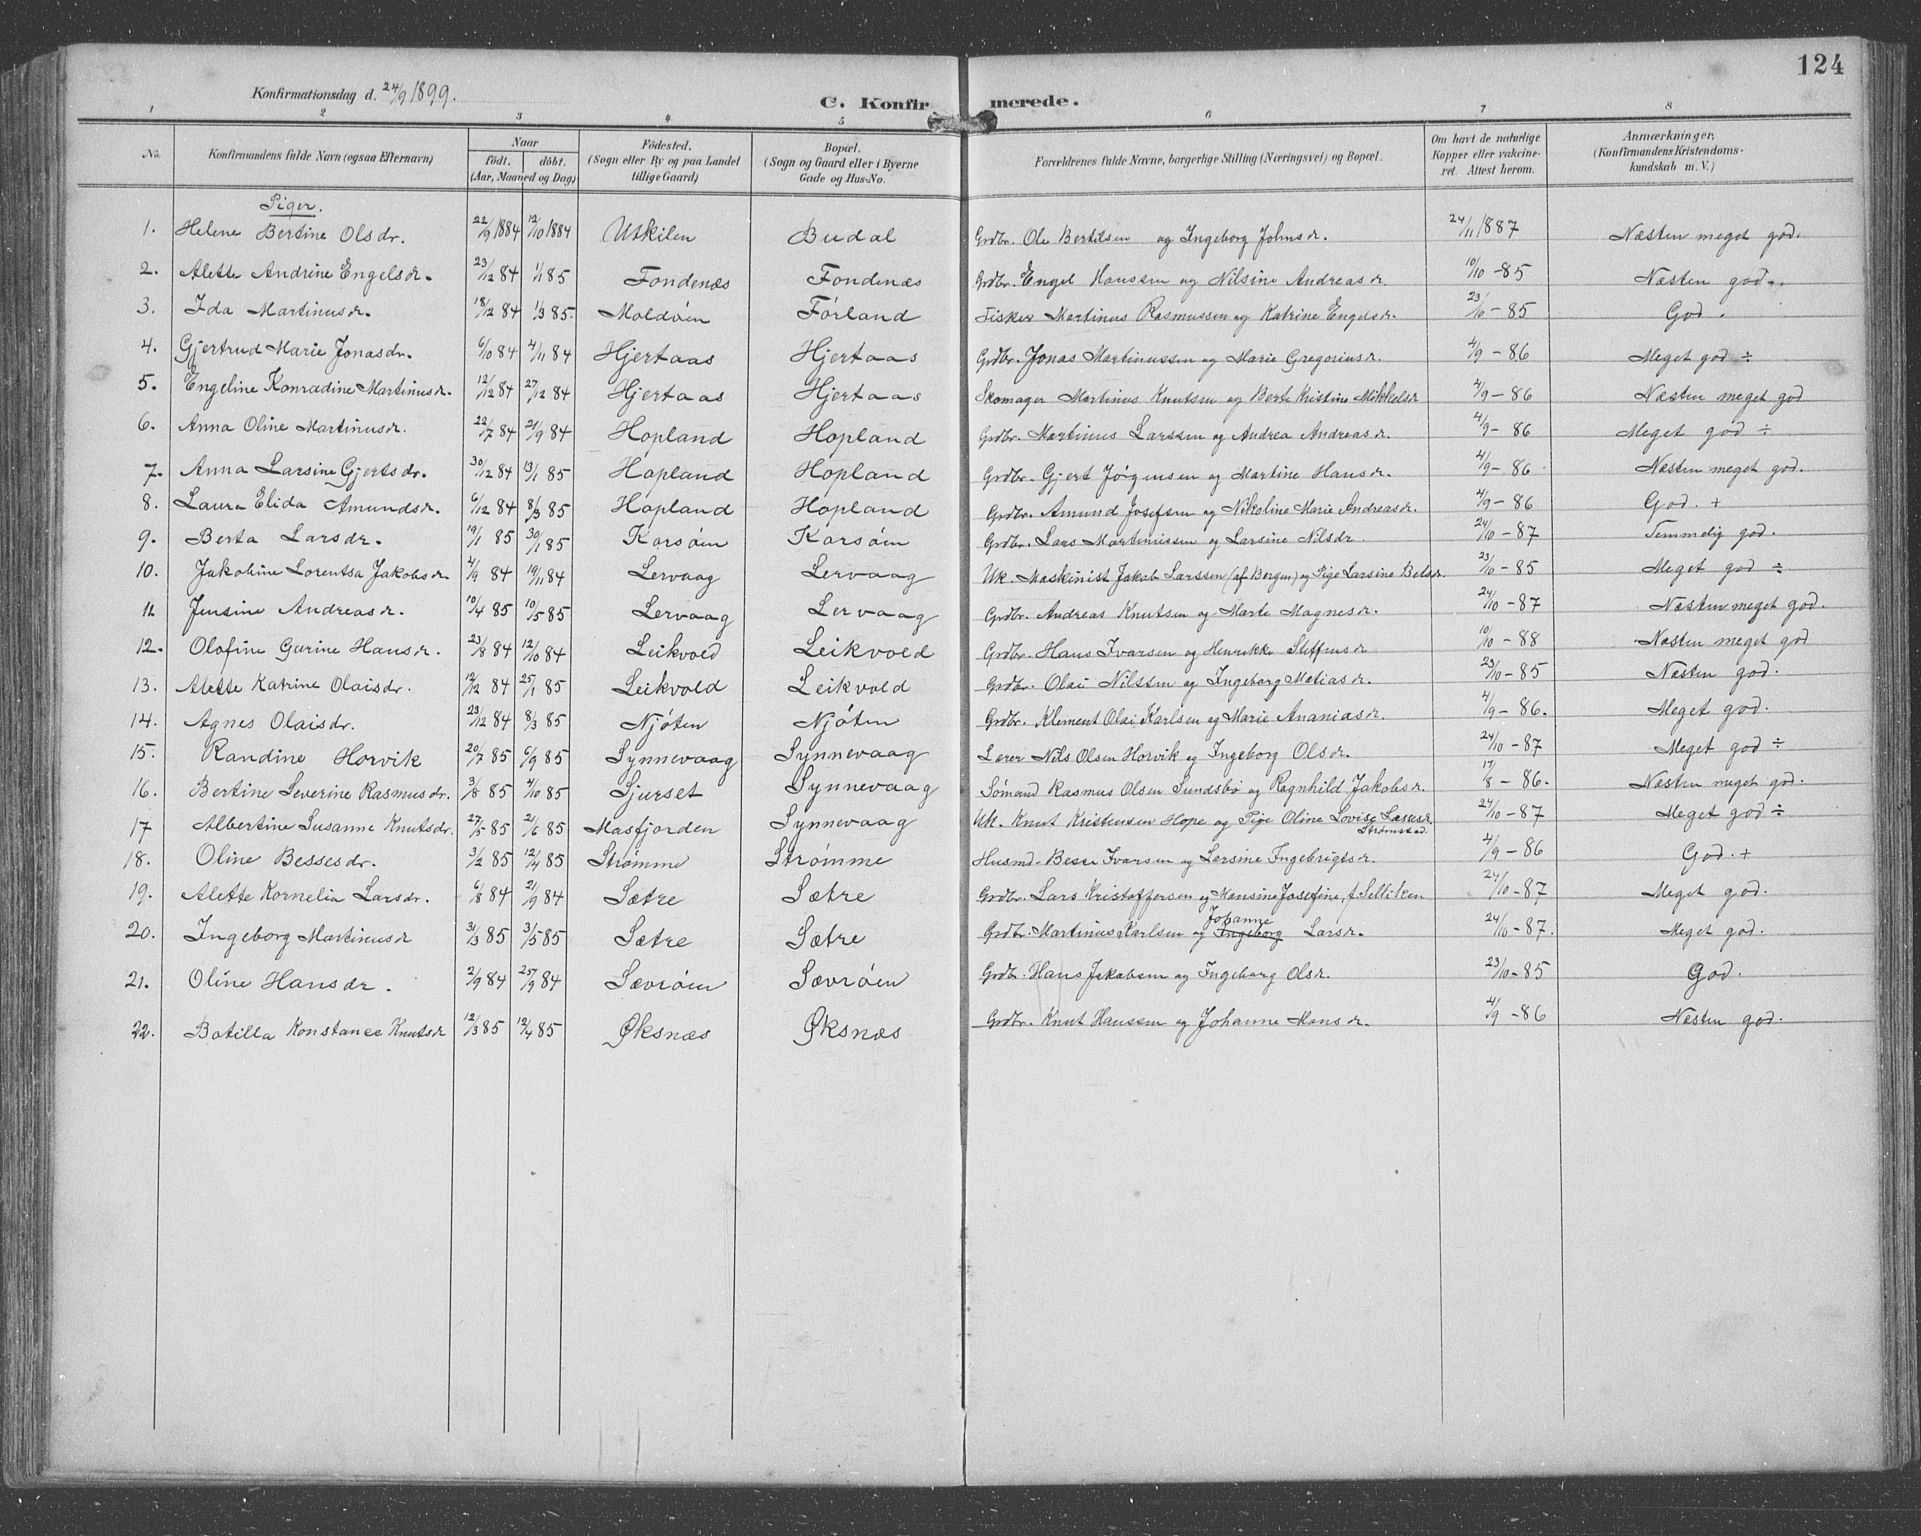 124
Konfirmationsdag d. 24/9 1899.
C. Konfirmerede.
1 2 3 4 5 6 7 8
No. Konfirmandens fulde Navn (ogsaa Efternavn) Naar födt. döbt. (Aar, Maaned og Dag) Födested. (Sogn eller By og paa Landet tillige Gaard) Bopæl. (Sogn og Gaard eller i Byerne Gade og Hus-No. Forældrenes fulde Navne, borgerlige Stilling (Næringsvei) og Bopæl. Om havt de naturlige Kopper eller vakcineret. Attest herom. Anmærkninger. (Konfirmandens Kristendomskundskab m. V.)
Piger.
1. Helene Bertine Olsdr. 22/9 1884 12/10 1884 Utkilen Budal Grdbr. Ole Bertilsen og Ingeborg Johnsr. 24/11 1887 Næsten meget god.
2. Alette Andrine Engelsdr. 23/12 84 1/1 85 Fondenæs Fondenæs Grdbr. Engel Hanssen og Nilsine Andreasdr. 10/10 - 85 Næsten god.
3. Ida Martinusdr. 18/12 84 1/3 85 Moldöen Førland Fisker Martinus Rasmussen og Katrine Engelsdr. 23/10 - 85 God.
4. Gjertrud Marie Jonasdr. 6/10 84 4/11 84 Hjertaas Hjertaas Grdbr. Jonas Martinussen og Marie Gregoriusdr. 4/9 - 86 Meget god ÷
5. Engeline Konradine Martinusdr. 12/12 84 27/12 84 Hjertaas Hjertaas Skomager Martinus Knutsen og Berte Kristine Mikkelsdr 4/9 - 86 Næsten meget god
6. Anna Oline Martinusdr. 22/7 84 21/9 84 Hopland Hopland Grdbr. Martinus Larssen og Andrea Andreasdr. 4/9 - 86 Meget god ÷
7. Anna Larsine Gjertsdr. 30/12 84 13/1 85 Hopland Hopland Grdbr. Gjert Jörgensen og Martine Hansdr. 4/9 - 86 Næsten meget god.
8. Laura Elida Amundsdr. 6/12 84 8/3 85 Hopland Hopland Grdbr. Amund Josefsen og Nikoline Marie Andreasdr. 4/9 - 86 God. +
9. Berta Larsdr. 19/1 85 30/1 85 Korsöen Korsöen Grdbr. Lars Martinussen og Larsine Nilsdr. 24/10 - 87 Temmelig god.
10. Jakobine Lorentsa Jakobsdr. 4/9 84 19/11 84 Lervaag Lervaag Uk. Maskinist Jakob Larssen (af Bergen) og Pige Larsine Belsdr. 23/10 - 85 Meget god ÷
11 Jensine Andreasdr. 10/4 85 10/5 85 Lervaag Lervaag Grdbr. Andreas Knutsen og Marte Magnesdr. 24/10 - 87 Næsten meget god.
12. Olofine Gurine Hansdr. 23/8 84 12/10 84 Leikvold Leikvold Grdbr. Hans Ivarsen og Henrikke Steffensdr 10/10 - 88 Næsten meget god
13. Alette Katrine Olaisdr. 12/12 84 25/1 85 Leikvold Leikvold Grdbr. Olai Nilssen og Ingeborg Matiasdr. 23/10 - 85 Næsten god.
14. Agnes Olaisdr. 23/12 84 8/3 85 Njöten Njöten Grdbr. Klement Olai Karlsen og Marie Ananiasdr. 4/9 - 86. Meget god.
15. Randine Horvik 20/7 85 6/9 85 Synnevaag Synnevaag Lærer Nils Olsen Horvik og Ingeborg Olsdr. 24/10 - 87 Meget god ÷
16. Bertine Severine Rasmusdr. 3/8 85 4/10 85 Sjurset Synnevaag Sømand Rasmus Olsen Sundsbø og Ragnhild Jakobsdr. 17/8 - 86. Næsten meget god.
17 Albertine Susanne Knutsdr. 27/5 85 21/6 85 Masfjorden Synnevaag Uk. Knut Kristensen Hope og Pige Oline Lovise Lassesdr. Strømstad. 24/10 - 87 Meget god ÷
18. Oline Bessesdr. 3/2 85 12/4 85 Strømme Strömme Husmd. Besse Ivarsen og Larsine Ingebrigtsdr. 4/9 - 86 God. +
19. Alette Kornelia Larsdr. 6/8 84 21/9 84 Sætre Sætre Grdbr. Lars Kristoffersen og Mansine Josefine, f. Selliken 24/10 - 87 Meget god.
20. Ingeborg Martinusdr 31/3 85 3/5 85 Sætre Sætre Grdbr. Martinus Karlsen og Ingeborg Johanne Larsdr. 24/10 - 87. Meget god.
21. Oline Hansdr. 2/9 84 25/9 84 Sævröen Sævröen Grdbr. Hans Jakobsen og Ingeborg Olsdr. 23/10 - 85 God.
22. Botilla Konstanse Knutsdr 12/3 85 12/4 85 Øksnæs Øksnæs Grdbr. Knut Hanssen og Johanne Monsdr. 4/9 - 86 Næsten god.